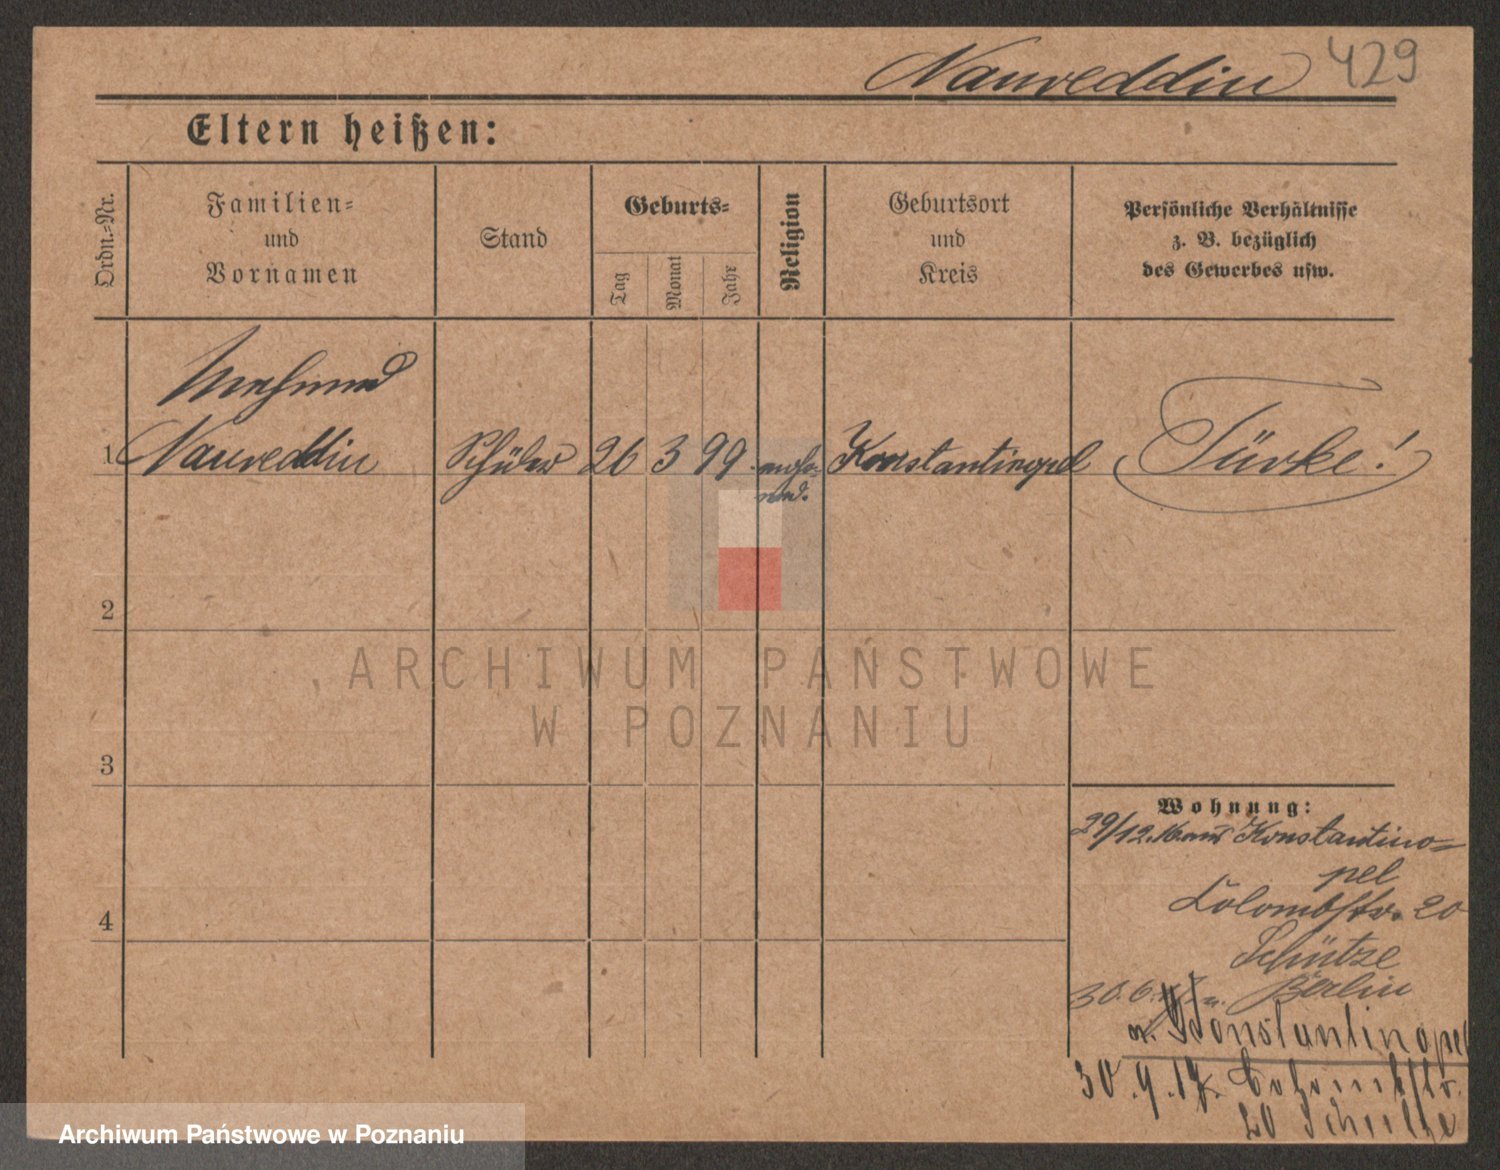 Naureddin 429
Eltern heißen:
Ordn.-Nr.
Familien-
und
Vornamen
Stand
Geburts-
Tag
Monat
Jahr
Religion
Geburtsort
und
Kreis
Persönliche Verhältnisse
z. B. bezüglich
des Gewerbes usw.
Mehmed
1 Naureddin Schüler 26 3 99 Konstantinopel Türke!
2
ARCHIWUM PAŃSTWOWE
W POZNANIU
3
Wohnung:
29/12.16. aus Konstantino=
pel
4 Colombstr. 20
Schütze
30.6.17 n. Berlin
Konstantinopel
30.9.17. Colombstr.
20 Schulze
Archiwum Państwowe w Poznaniu